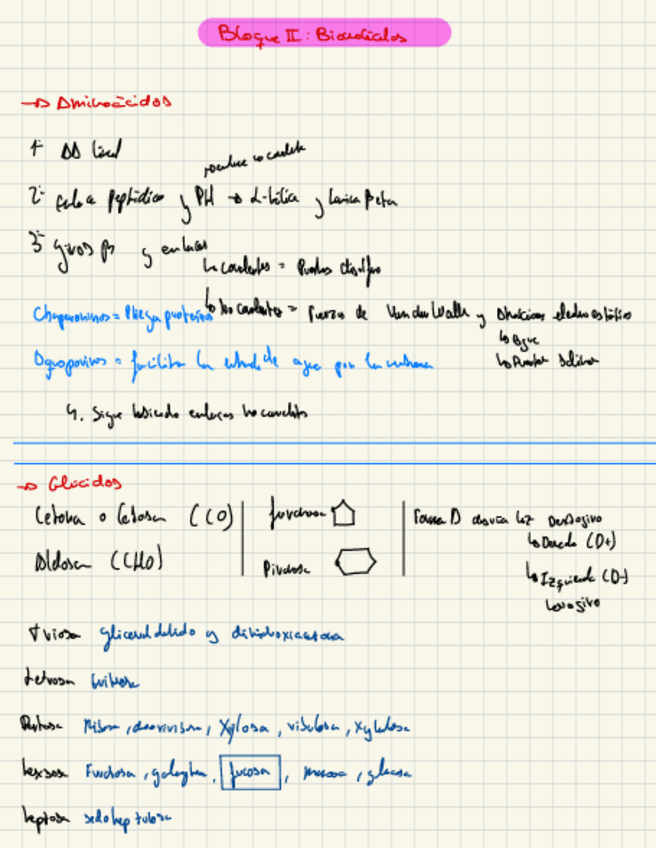 Bloque II: Biomoléculas
→ Aminoácidos
1º AA lineal
2º enlace peptídico y PH → α-hélice y lámina beta
puentes no covalente
3º giros β y enlaces
↳ covalentes = Puentes disulfuro
↳ No covalentes = Fuerza de Van der Walls y Atracciones electroestática
↳ Agua
↳ Puentes salinos
Chaperoninas = Pliega proteínas
Aquoporinas = facilitan la entrada de agua por la membrana
4. Sigue habiendo enlaces no covalentes
→ Glúcidos
Cetona o Cetosa (CO)
Aldosa (CHO)
furanosa
Piranosa
Forma D desvía luz
Dextrogiro
↳ Derecha (D+)
↳ Izquierda (D-)
Levogiro
triosa gliceraldehido y dihidroxiacetona
tetrosa eritrosa
Pentosa Ribosa, desoxirribosa, Xylosa, ribulosa, xylulosa
hexosa Fructosa, galactosa, fucosa, manosa, glucosa
heptosa sedoheptulosa